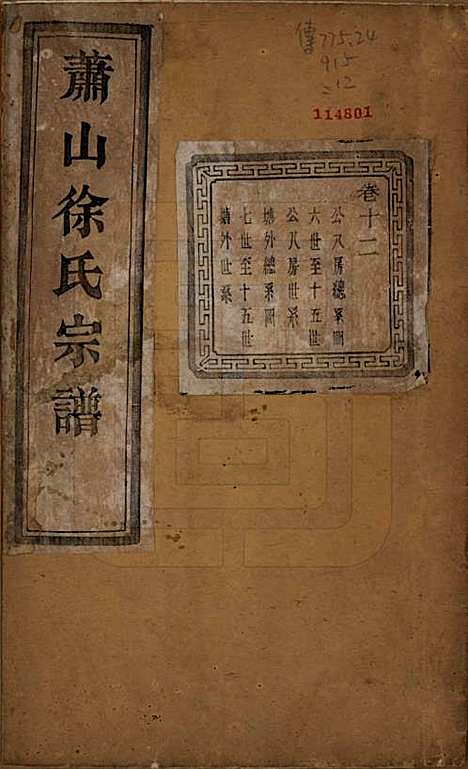 蕭山徐氏宗譜
卷十二
公八房總系圖
六世至十五世
公八房世系
塘外總系圖
七世至十五世
塘外世系
775.24
915
12
114801